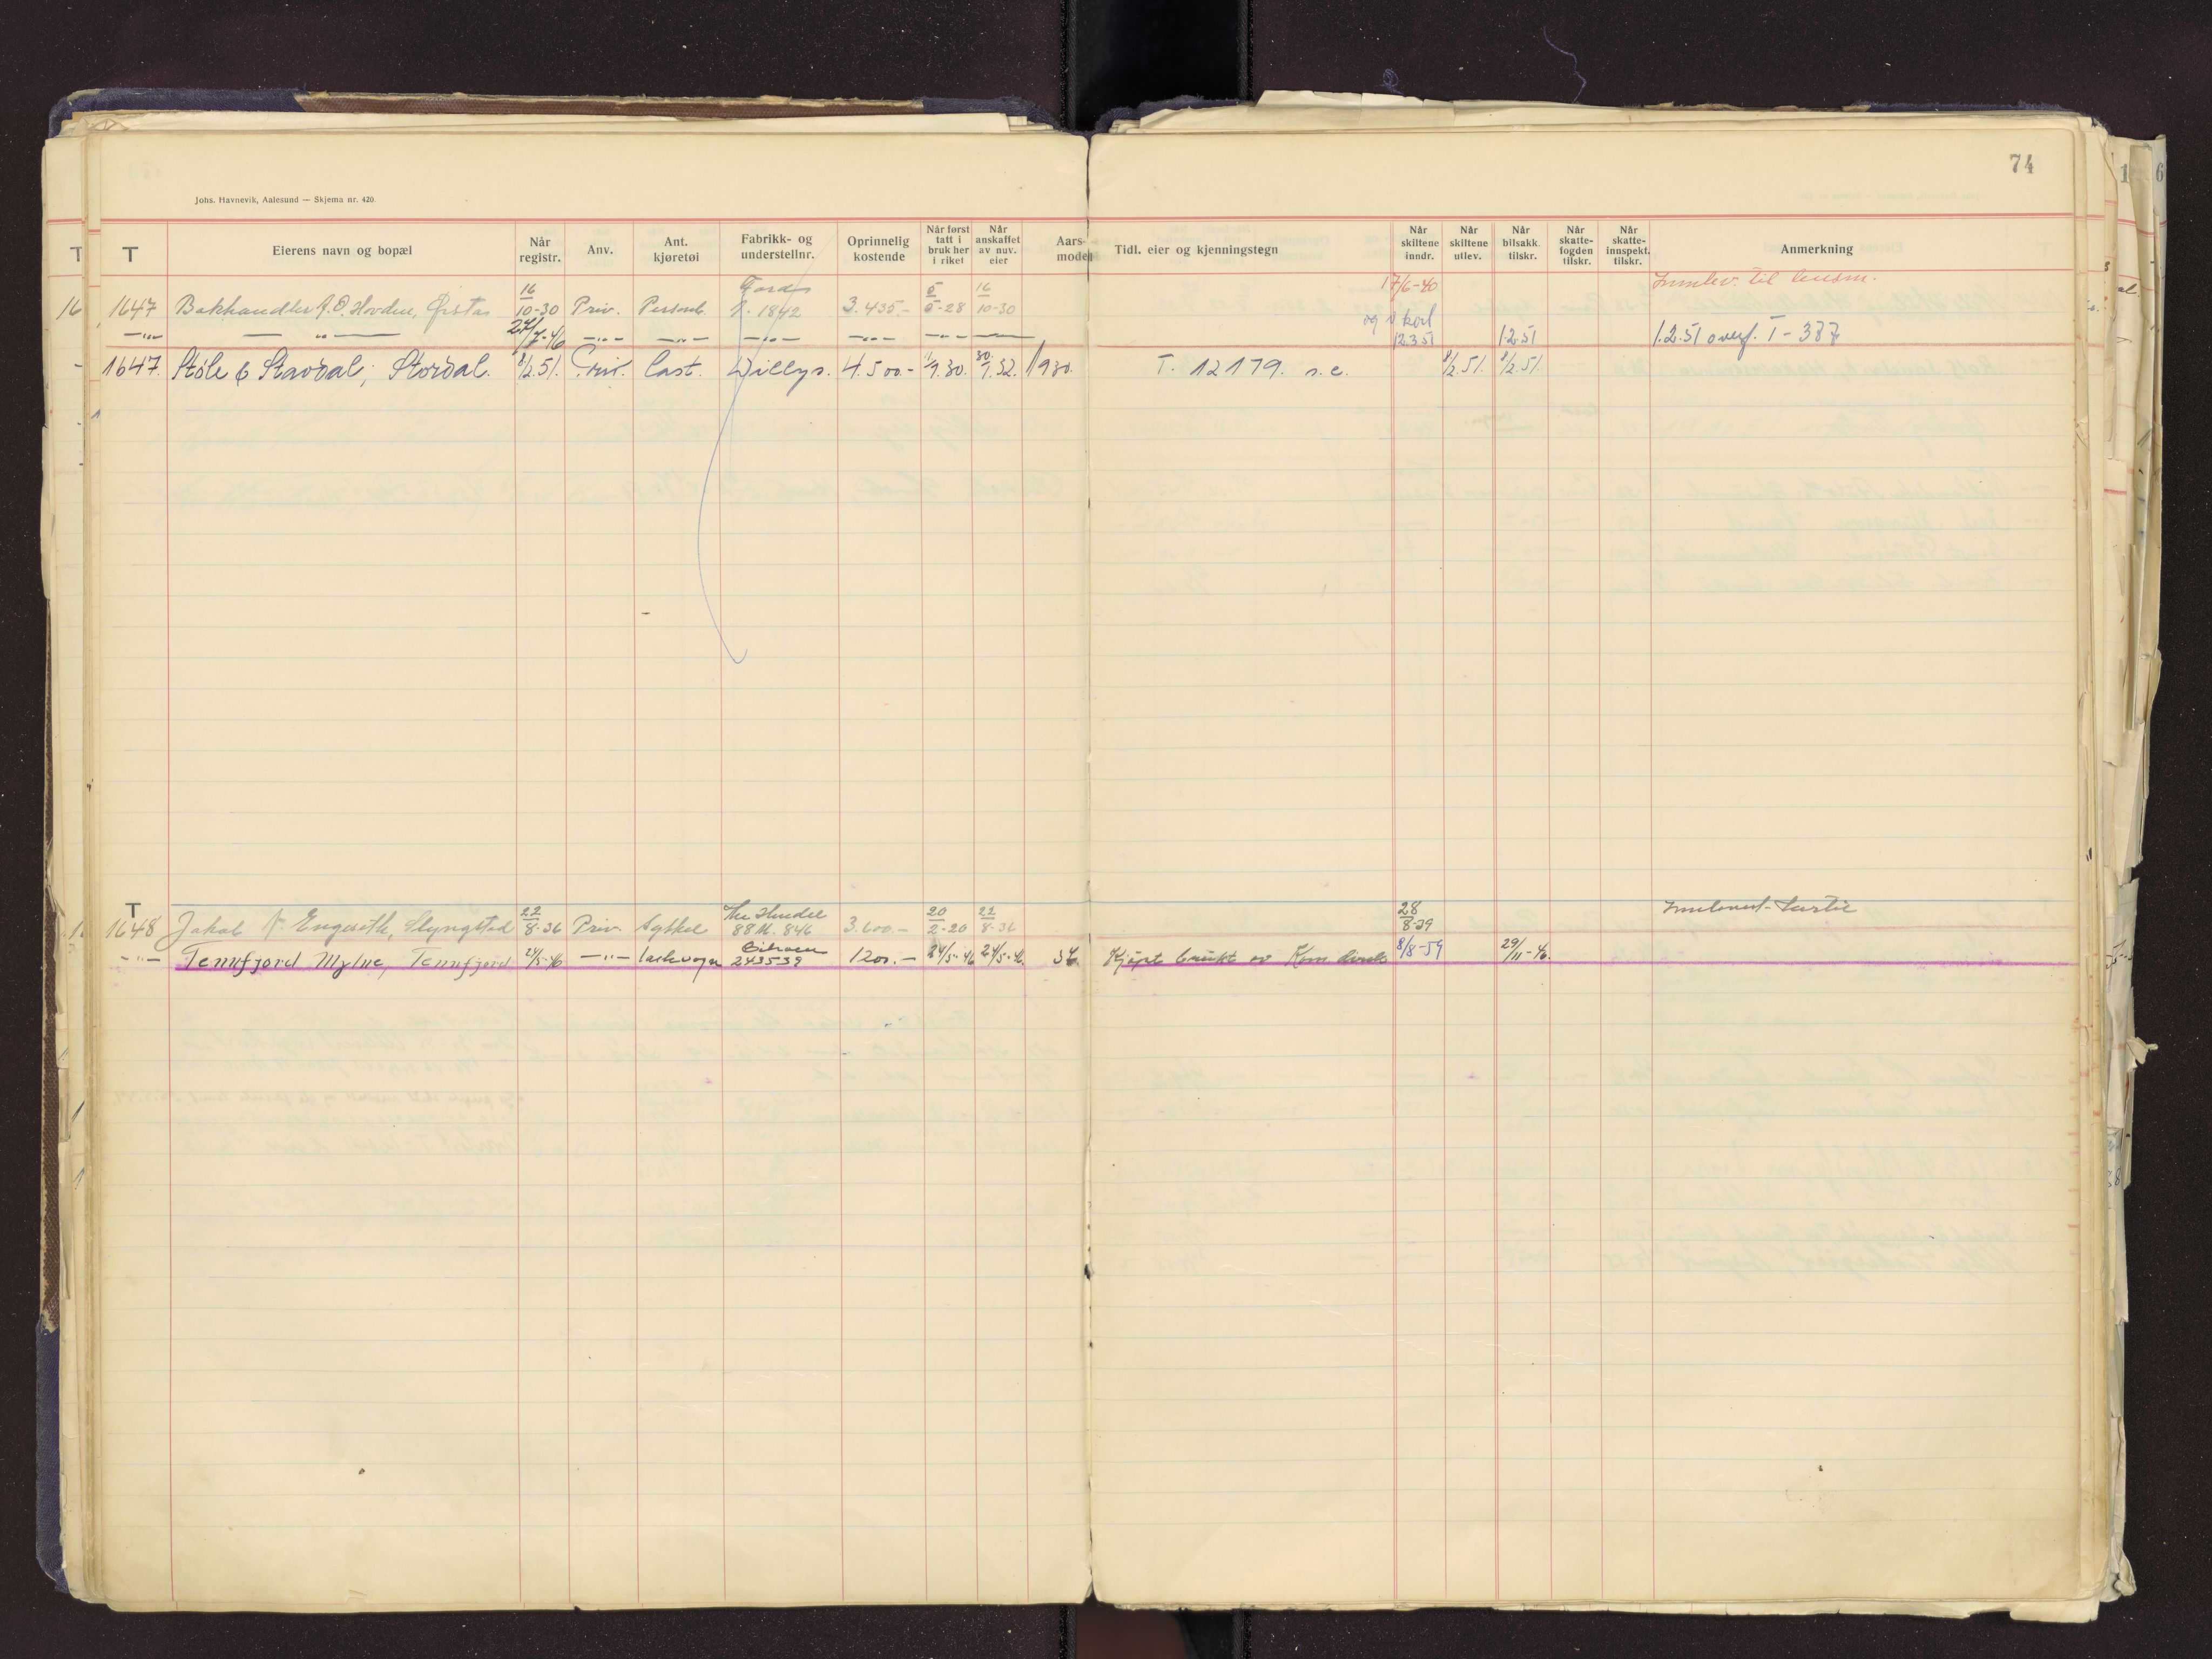 74
Johs. Havnevik, Aalesund — Skjema nr. 420.
T Eierens navn og bopæl Når registr. Anv. Ant. kjøretøi Fabrikk- og understellnr. Oprinnelig kostende Når først tatt i bruk her i riket Når anskaffet av nuv. eier Aars-model Tidl. eier og kjenningstegn Når skiltene inndr. Når skiltene utlev. Når bilsakk. tilskr. Når skatte-fogden tilskr. Når skatte-innspekt. tilskr. Anmerkning
1647 Hovden, Ørsta 16/10-30 Priv. Personb. Ford 1842 3.435.- 5/5-28 16/10-30 17/6-40 Innlev. til lensm.
—"— —"— 27/7-46 —"— —"— —"— —"— —"— — og v.kort 12351 1.2.51 1.2.51 overf. T-387
1647. Støle & Stavdal, Stordal. 8/2.51. Priv. Last. Willys. 4.500.- 1/9.30. 30/9.32. 1930. T. 12179. s.e. 8/2.51. 8/2.51.
T
1648 Jakob Engeseth, Slyngstad 22/8-36 Priv. Sykkel 88M.846 3.600.- 20/2-20 22/8-36 28/8-39
—"— Tennfjord Mylne, Tennfjord 24/5-46 —"— lastevogn Citroen 243539 1200.— 24/5-46 24/5-46 34 Kjøpt brukt av 8/8-59 29/11-46.